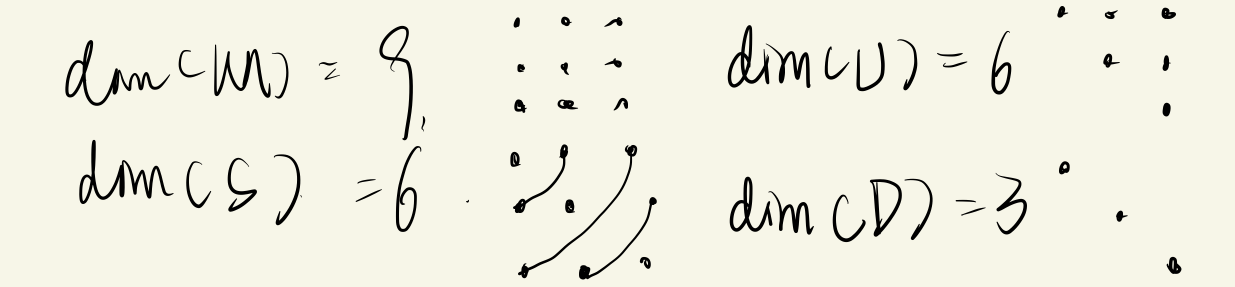 dim(M) = 9,
dim(U) = 6
dim(S) = 6.
dim(D) = 3